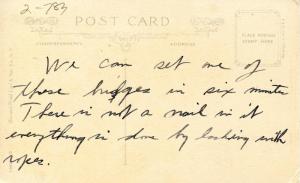 2-789
POST CARD
CORRESPONDENCE
ADDRESS
PLACE POSTAGE
STAMP HERE
We can set one of
those bridges in six minutes
There is not a nail in it
everything is done by lashing with
ropes.